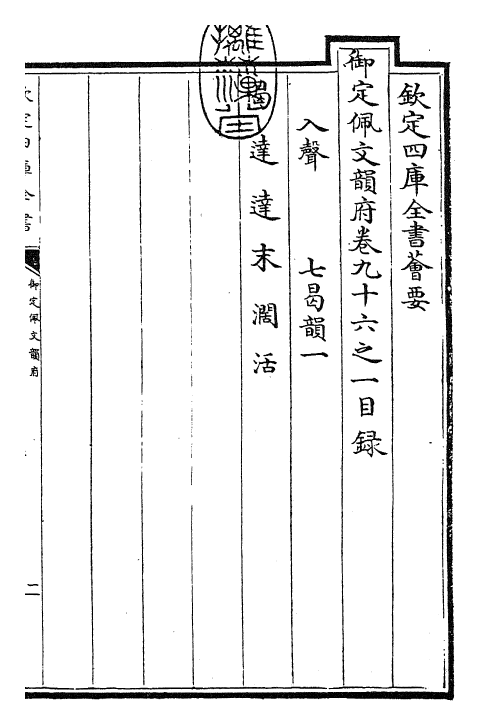 欽定四庫全書薈要
御定佩文韻府卷九十六之一目録
入聲 七曷韻一
達 達 末 濶 活
欽定四庫全書
御定佩文韻府
二